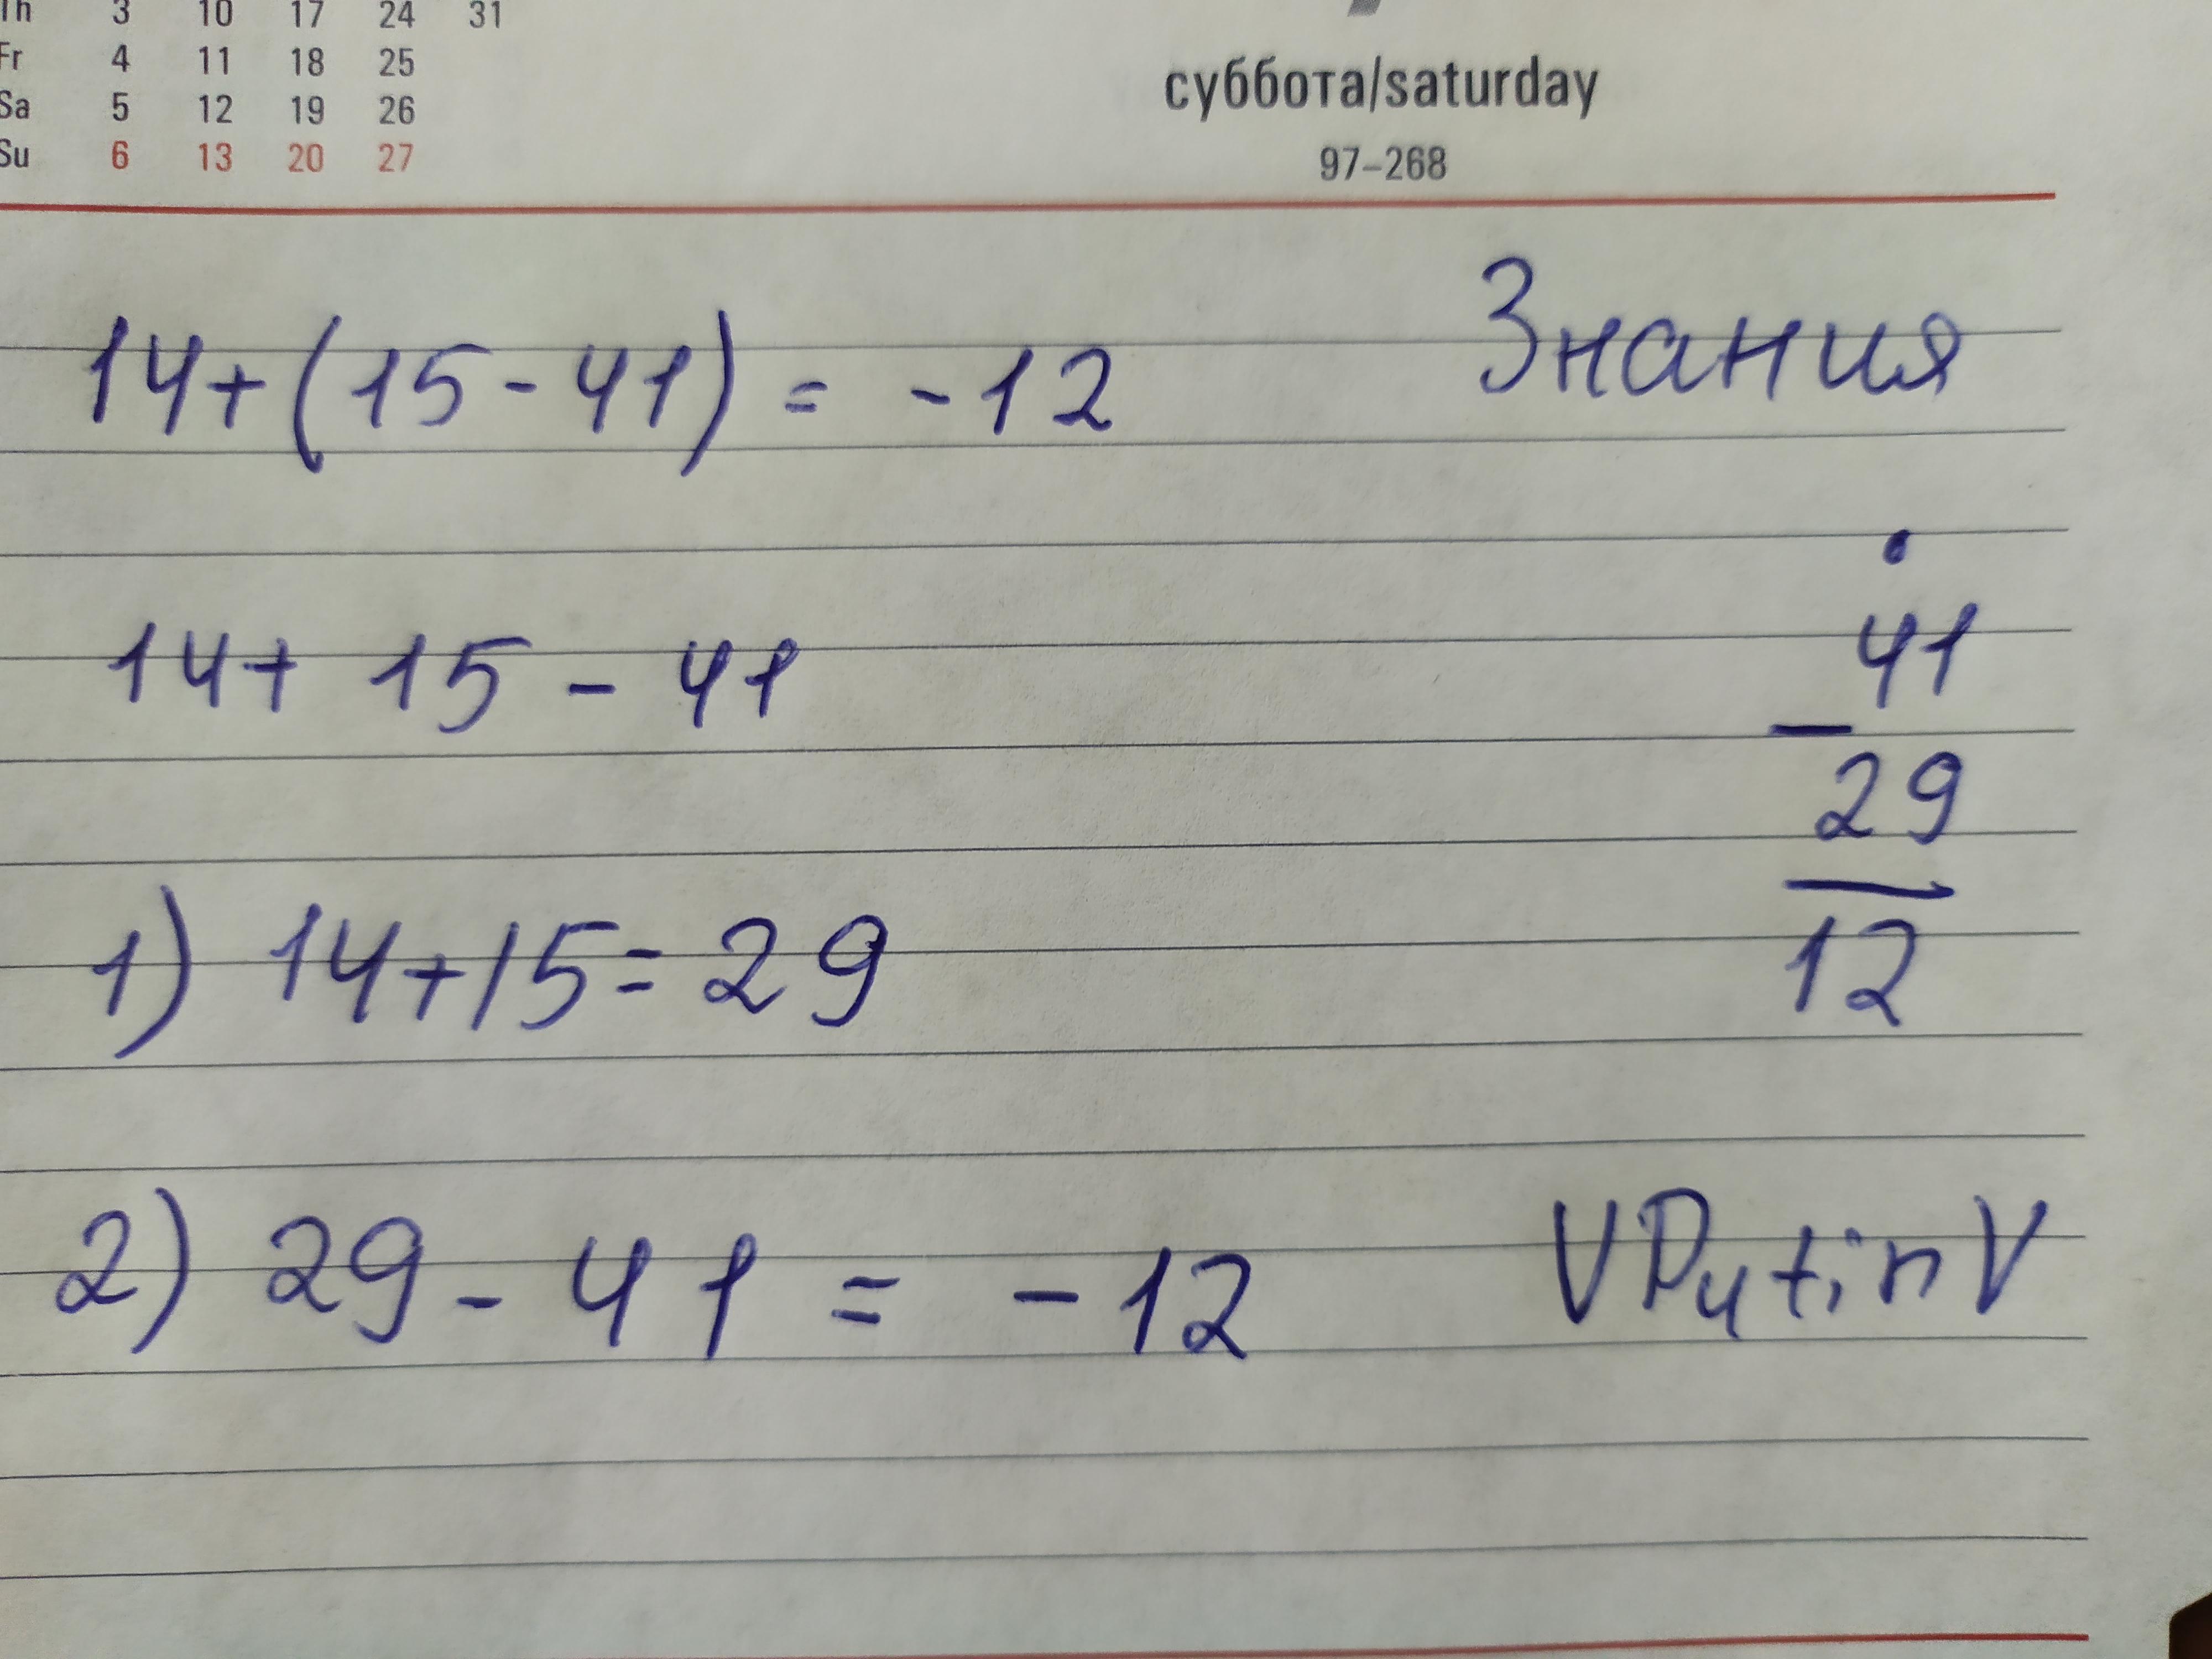 Th 3 10 17 24 31
Fr 4 11 18 25
Sa 5 12 19 26
Su 6 13 20 27
суббота/saturday
97–268
14+(15-41) = -12
Знания
14+ 15 - 41
41
- 29
12
1) 14+15=29
2) 29 - 41 = -12
VPutinV